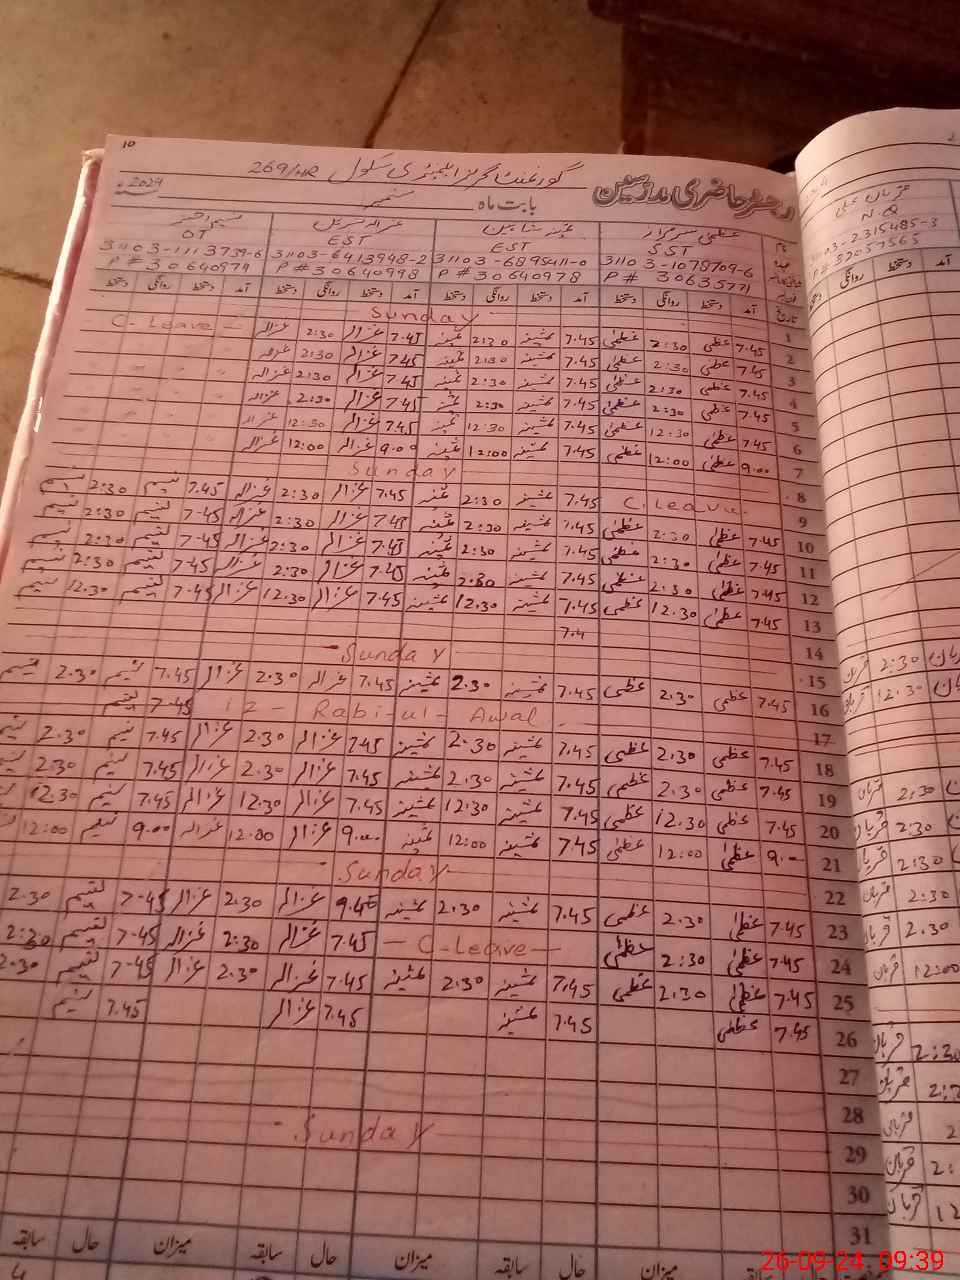 10
گورنمنٹ گرلز ایلیمنٹری سکول 269/HR
رجسٹر حاضری مدرسین بابت ماہ ستمبر 2024ء
عظمیٰ غزالہ
SST EST EST OT
31103-1078709-6 31103-6895411-0 31103-6413948-2 31103-1113739-6
P# 30635771 P# 30640978 P# 30640998 P# 30640979
تاریخ آمد دستخط روانگی دستخط آمد دستخط روانگی دستخط آمد دستخط روانگی دستخط دستخط
1 Sunday
2 7.45 عظمیٰ 2:30 عظمیٰ 7.45 ثمینہ 2:30 ثمینہ 7.45 غزالہ 2:30 غزالہ C. Leave
3 7.45 عظمیٰ 2:30 عظمیٰ 7.45 ثمینہ 2:30 ثمینہ 7.45 غزالہ 2:30 غزالہ
4 7.45 عظمیٰ 2:30 عظمیٰ 7.45 ثمینہ 2:30 ثمینہ 7.45 غزالہ 2:30 غزالہ
5 7.45 عظمیٰ 2:30 عظمیٰ 7.45 ثمینہ 2:30 ثمینہ 7.45 غزالہ 2:30 غزالہ
6 7.45 عظمیٰ 12:30 عظمیٰ 7.45 ثمینہ 12:30 ثمینہ 7.45 غزالہ 12:30 غزالہ
7 9.00 عظمیٰ 12:00 عظمیٰ 7.45 ثمینہ 12:00 ثمینہ 9.00 غزالہ 12:00 غزالہ
8 Sunday
9 C. Leave 7.45 ثمینہ 2:30 ثمینہ 7.45 غزالہ 2:30 غزالہ 7.45 نسیم 2:30 نسیم
10 7.45 عظمیٰ 2:30 عظمیٰ 7.45 ثمینہ 2:30 ثمینہ 7.45 غزالہ 2:30 غزالہ 7.45 نسیم 2:30 نسیم
11 7.45 عظمیٰ 2:30 عظمیٰ 7.45 ثمینہ 2:30 ثمینہ 7.45 غزالہ 2:30 غزالہ 7.45 نسیم 2:30 نسیم
12 7.45 عظمیٰ 2:30 عظمیٰ 7.45 ثمینہ 2.30 ثمینہ 7.45 غزالہ 2:30 غزالہ 7.45 نسیم 2:30 نسیم
13 7.45 عظمیٰ 12.30 عظمیٰ 7.45 ثمینہ 12.30 ثمینہ 7.45 غزالہ 12.30 غزالہ 7.45 نسیم 12.30 نسیم
14 7.4
15 Sunday
16 7.45 عظمیٰ 2.30 عظمیٰ 7.45 ثمینہ 2.30 ثمینہ 7.45 غزالہ 2.30 غزالہ 7.45 نسیم 2.30 نسیم
17 12 - Rabi-ul-Awal 7.45 نسیم
18 7.45 عظمیٰ 2.30 عظمیٰ 7.45 ثمینہ 2.30 ثمینہ 7.45 غزالہ 2.30 غزالہ 7.45 نسیم 2.30 نسیم
19 7.45 عظمیٰ 2.30 عظمیٰ 7.45 ثمینہ 2.30 ثمینہ 7.45 غزالہ 2.30 غزالہ 7.45 نسیم 2.30
20 7.45 عظمیٰ 12.30 عظمیٰ 7.45 ثمینہ 12.30 ثمینہ 7.45 غزالہ 12.30 غزالہ 7.45 نسیم 12.30
21 9.00 عظمیٰ 12:00 عظمیٰ 7.45 ثمینہ 12:00 ثمینہ 9.00 غزالہ 12:00 غزالہ 9.00 نسیم 12:00
22 Sunday
23 7.45 عظمیٰ 2.30 عظمیٰ 7.45 ثمینہ 2.30 ثمینہ 9.45 غزالہ 2.30 غزالہ 7.45 نسیم 2.30
24 7.45 عظمیٰ 2:30 عظمیٰ - C-Leave - 7.45 غزالہ 2:30 غزالہ 7.45 نسیم 2:30
25 7.45 عظمیٰ 2.30 عظمیٰ 7.45 ثمینہ 2.30 ثمینہ 7.45 غزالہ 2.30 غزالہ 7.45 نسیم 2.30
26 7.45 عظمیٰ 7.45 ثمینہ 7.45 غزالہ 7.45 نسیم
27
28
29 Sunday
30
31
میزان حال سابقہ میزان حال سابقہ میزان حال سابقہ
قربان علی
N.Q
31103-2315485-3
P# 32057565
روانگی دستخط
قربان 2:30 قربان
قربان 12.30 قربان
قربان 2:30
قربان 2:30
قربان 2:30
قربان 2:30
قربان 2.30
قربان 12:00
قربان 2:30
قربان
قربان
قربان
قربان
26-09-24, 09:39